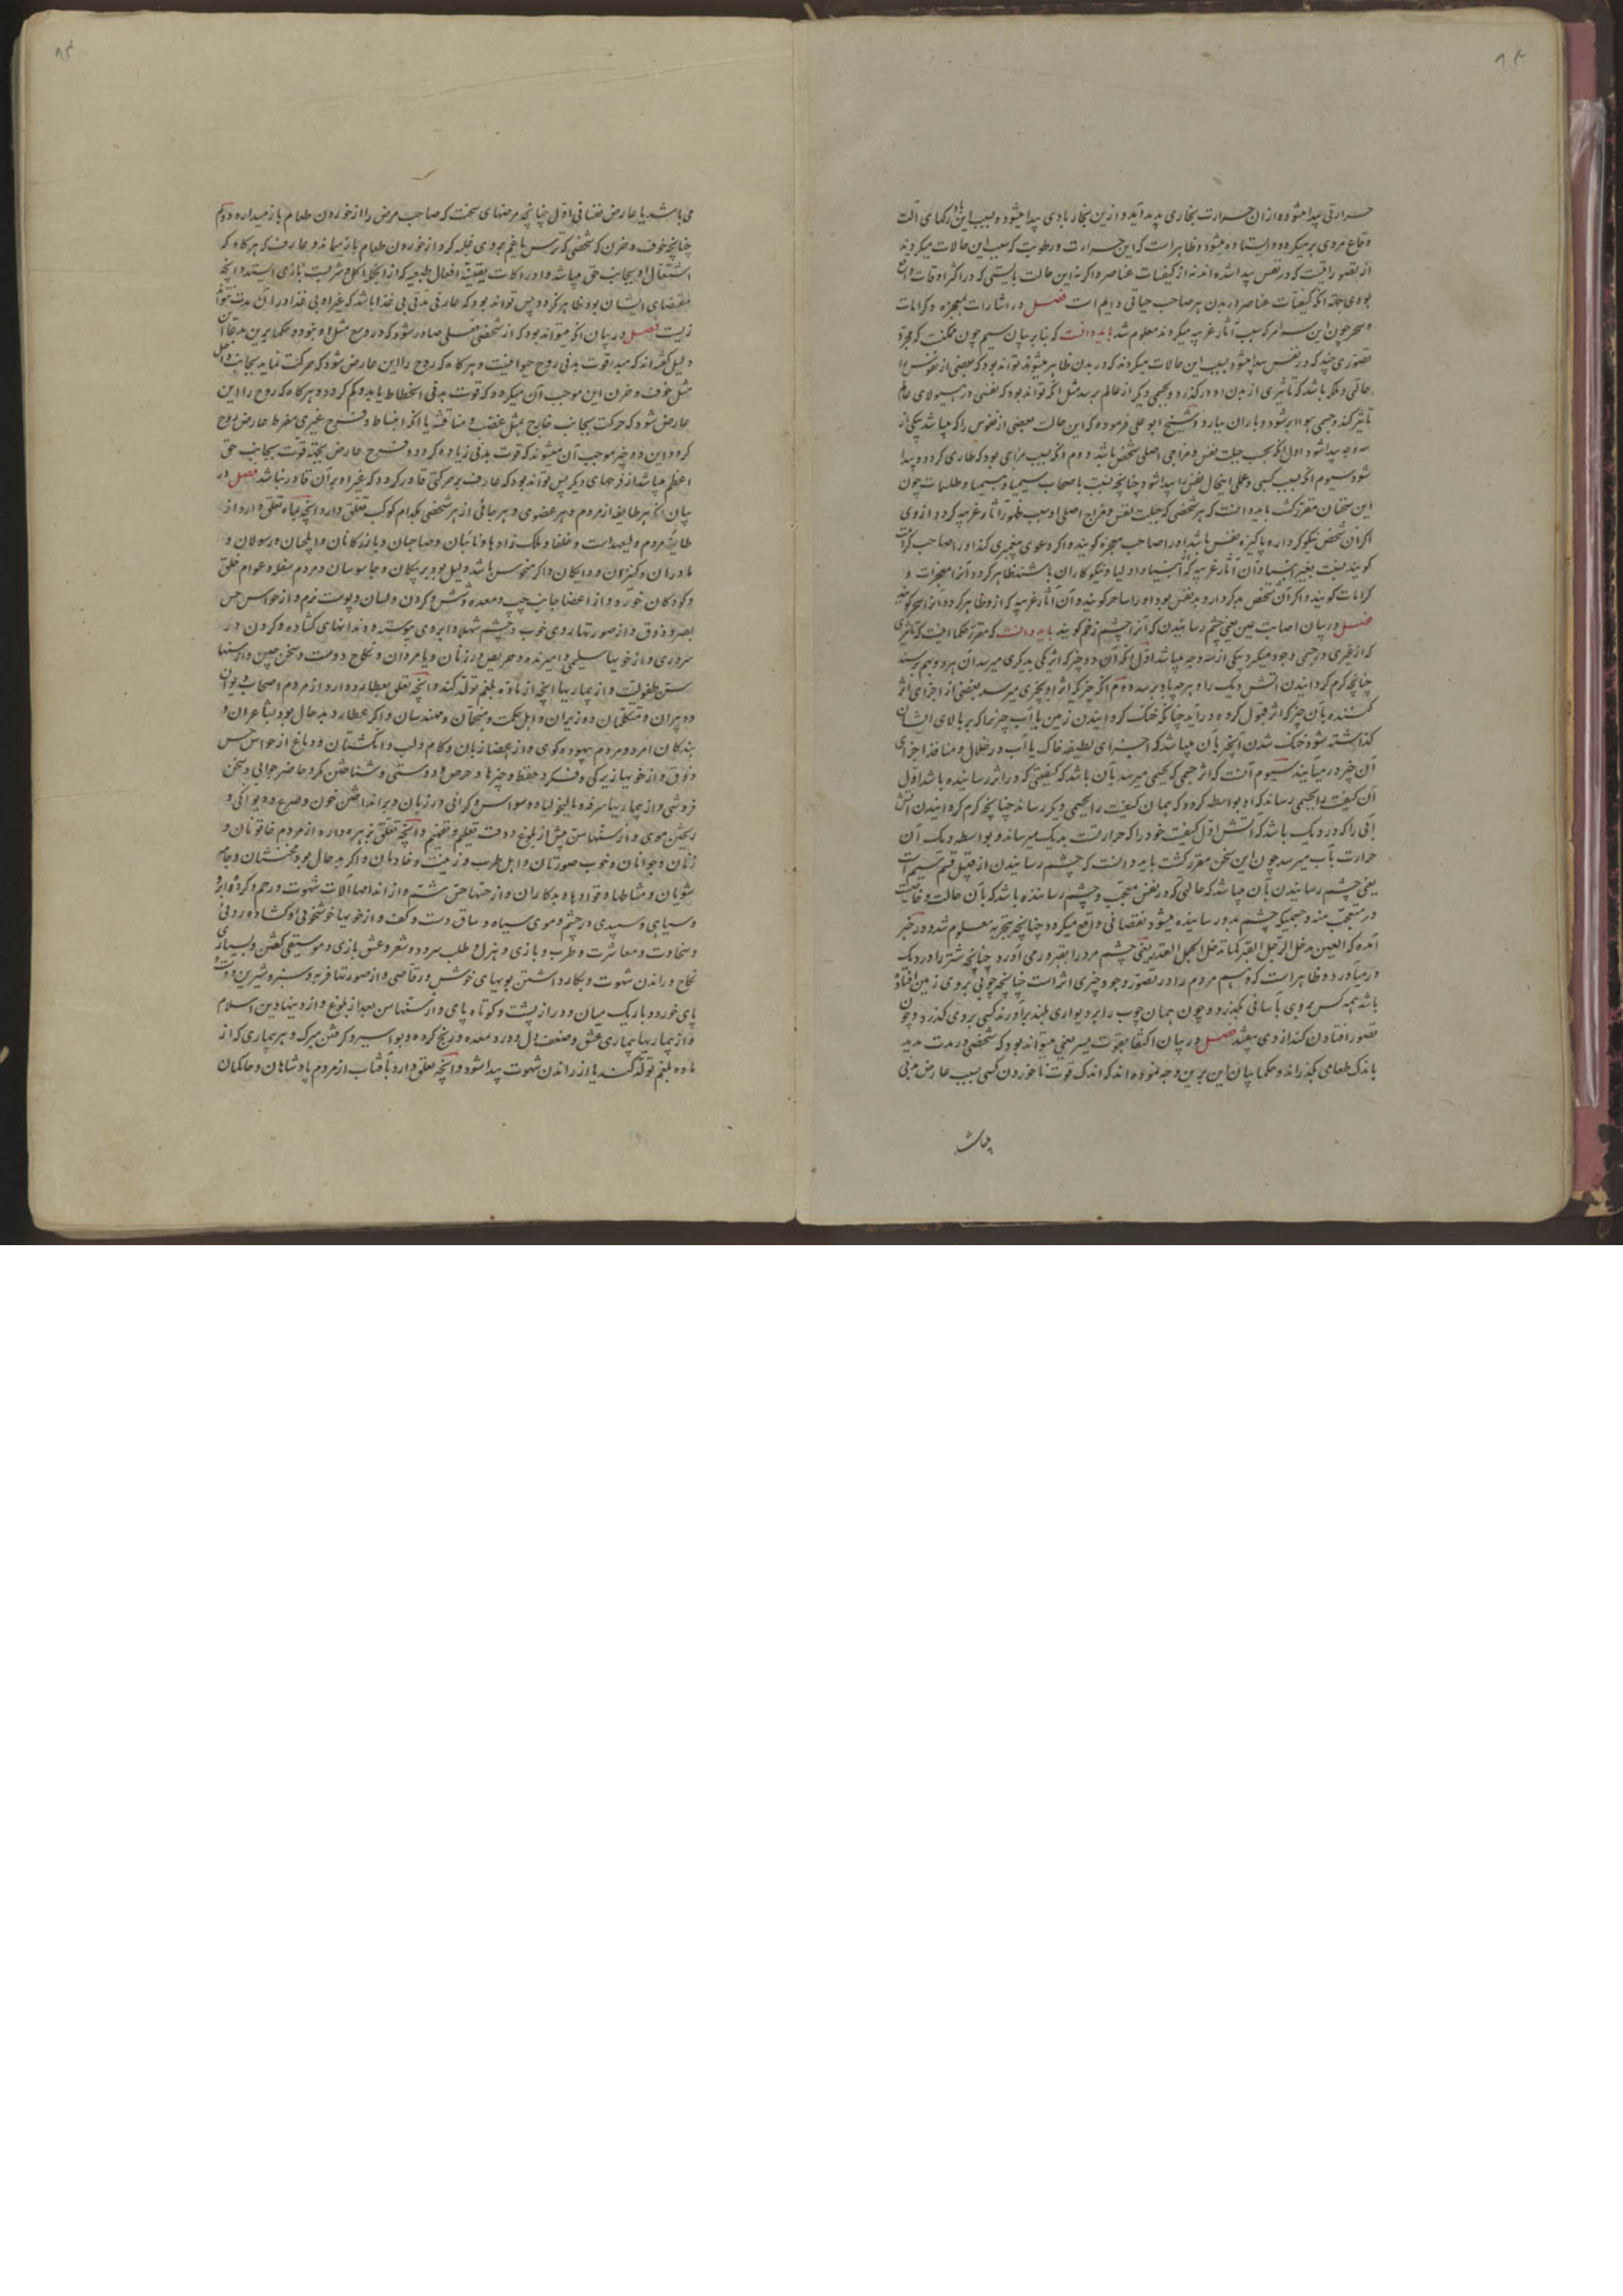 حرارتی پیدا میشود و از ان حرارت بخاری پدید آید و ازین بخار بادی پیدا میشود و بسبب این باد رکهای آلت
وقاع مردی پر میکردد و ایستاده میشود و ظاهر است که این حرارت و رطوبت که سبب این حالات میکردند
از تصور اقیت که در نفس پیدا شده اند نه از کیفیات عناصر و اکر نه این حالت بایستی که در اکثر اوقات واقع
بودی جهة انکه کیفیات عناصر در بدن هر صاحب حیاتی دایم است فصل در اشارات معجزه و کرامات
و سحر چون این سرامر که سبب آثار غریبه میکردند معلوم شد باید دانست که بنابر بیان سیم چون ممکنست که مجرد
تصوری چند که در نفس پیدا میشود سبب این حالات میکردند که در بدن ظاهر میشوند تواند بود که بعضی از نفوس را
حالتی و ملکه باشد که تاثیری از بدن او درکذرد و بجسمی دیکر از عالم برسد مثل انکه تواند بود که نفسی در هیولای عالم
تاثیر کند و جسمی هوا ابر شود و باران ببارد و شیخ ابو علی فرموده که این حالت بعضی از نفوس را که میباشد بیکی از
سه وجه پیدا شود اول انکه بحسب جبلت نفس و مزاجی اصلی شخص باشد دوم انکه بسبب مزاجی بود که طاری کردد و پیدا
شود سیوم انکه بسبب کسبی و عملی اینحال نفس را پیدا شود چنانچه نسبت باصحاب سیمیا و طلسمات چون
این سخنان مقرر کشت باید دانست که هر شخصی که جبلت نفس و مزاج اصلی او سبب ظهور آثار غریبه کردد از وی
اکر آن شخص نیکو کردار و پاکیزه نفس باشد او را صاحب معجزه کویند و اکر دعوی پیغمبری کند او را صاحب کرامات
کویند نسبت بغیر انبیا و آن آثار غریبه که از انبیا و اولیا و نیکوکاران باشند ظاهر کردد آنرا معجزات و
کرامات کویند و اکر آن شخص بد کردار و بد نفس بود او را ساحر کویند و آن آثار غریبه که از و ظاهر کردد آنرا سحر کویند
فصل در بیان اصابت عین یعنی چشم رسانیدن که آنرا چشم زخم کویند باید دانست که مقرر حکما اینست که تاثیری
که از غیری در جسمی وجود میکیرد بیکی از سه وجه میباشد اول انکه آن دو چیز که اثر یکی بدیکری میرسد آن هر دو بهم برسند
چنانچه کرم کردانیدن اتش دیک را و هرچه باو برسد دوم انکه چیزیکه اثر او بچیزی میرسد بعضی از اجزای اثر
کننده بآن چیز که اثر قبول کرده درآید چنانکه خنک کردانیدن زمین یا آب چیزها که بر بالای ایشان
کذاشته شود خنک شدن آنچیز بآن میباشد که اجزای لطیفه خاک یا آب در خلال و منافذ اجزای
آن چیز درمیآیند سیوم آنست که اثر جسمی که بجسمی میرسد بآن باشد که کیفیتی که در اثر رساننده باشد اول
آن کیفیت را بجسمی رساند که او بواسطه کردد که همان کیفیت را بجسمی دیکر رساند چنانچه کرم کردانیدن آتش
آبی را که در دیک باشد که آتش اول کیفیت خود را که حرارتست بدیک میرساند و بواسطه دیک آن
حرارت بآب میرسد چون این سخن مقرر کشت باید دانست که چشم رسانیدن از قبیل قسم سیم است
یعنی چشم رسانیدن بآن میباشد که حالتی که در نفس معجب و چشم رساننده باشد که بآن حالت و خاصیت
در متعجب منه و جسمیکه چشم بدو رسانیده میشود نقصانی واقع میکردد چنانچه بتجربه معلوم شد و در خبر
آمده که العین تدخل الرجل القبر کما تدخل الجمل القدر یعنی چشم مرد را بقبر درمی آورد چنانچه شتر را در دیک
درمیآورد و ظاهر است که وهم مردم را در تصور وجود چیزی اثر است چنانچه چوبی بر روی زمین افتاده
باشد همه کس بر وی بآسانی بکذرد و چون همان چوب را بر دیواری بلند برآورند کسی بر وی کذرد و چون
تصور افتادن کند از وی بیفتد فصل در بیان اکتفا بقوت یسیر یعنی میتواند بود که شخصی در مدت مدید
باندک طعامی بکذراند و حکما بیان این برین وجه نموده اند که اندک قوت ناخوردن کسی بسبب عارض بدنی
میباشد
می باشد یا عارض نفسانی اول چنانچه مرضهای سخت که صاحب مرض را از خوردن طعام باز میدارد دویم
چنانچه خوف و حزن که شخصی که ترس یا غم بر وی غلبه کرد از خوردن طعام باز میماند و عارف که هرکاه که
اشتغال او بجانب حق میباشد و ادراکات یقینیه افعال طبیعیه که از انجا اکل و شربست بازمی ایستد و انچه
مقتضای ایشان بود ظاهر نکردد پس تواند بود که عارفی مدتی بی غذا باشد که غیر او بی غذا در آن مدت نتواند
زیست فصل در بیان انکه میتواند بود که از شخصی فعلی صادر شود که در وسع مثل او نبود و حکما برین مدعا آن
دلیل کفته اند که مبدا قوت بدنی روح حیوانیست و هرکاه که روح را این عارض شود که حرکت نماید بجانب داخل
مثل خوف و حزن این موجب آن میکردد که قوت بدنی انحطاط یابد و کم کردد و هرکاه که روح را این
عارض شود که حرکت بجانب خارج مثل غضب و منافسه یا انکه انبساط و فرح غیری مفرط عارض روح
کردد این دو چیز موجب آن میشوند که قوت بدنی زیاده کردد و فرح عارض بجهة قوت بجانب حق
اعظم میباشد از فرحهای دیکر پس تواند بود که عارف بر حرکتی قادر کردد که غیر او بر آن قادر نباشد فصل در
بیان انکه هر طایفه از مردم و هر عضوی و هر جائی از هر شخصی بکدام کوکب تعلق دارد انچه بماه تعلق دارد از
طایفه مردم ولیعهد است و خلفا و ملک زادها و نائبان و صاحبان و بازرکانان و ایلچیان و رسولان و
مادران و کنیزان و دایکان و اکر منحوس باشد دلیل بود بر پیکان و جاسوسان و مردم سفله و عوام خلق
و کودکان خورد و از اعضا جانب چپ و معده و شش و کردن و لسان و پوست نرم و از حواس حس
بصر و ذوق و از صورتها روی خوب و چشم شهلا و ابروی پیوسته و دندانهای کشاده و کردن در
سروری و از خویها سلیمی و امیزنده و حریص بر زنان و یا مردان و نکاح دوست و سخن چین و از سنها
سن طفولت و از بیماریها انچه از ماده بلغم تولد کند و انچه تعلق بعطارد دارد از مردم اصحاب دیوان
دبیران و متکلمان و وزیران و اهل حکمت و منجمان و مهندسان و اکر عطارد بد حال بود شاعران و
بندکان امرد و مردم بیهوده کوی و از اعضا زبان و کام و لب و انکشتان و دماغ از حواس حس
ذوق و از خویها زیرکی و فکر و حفظ چیزها و حرص و دوستی و شناختن مکر و حاضر جوابی و سخن
فروشی و از بیماریها سرفه و مالیخولیا و وسواس و کرانی در زبان و برانداختن خون و صرع و دیوانکی و
ریختن موی و از سنها سن پیش از بلوغ و وقت تعلیم و تفهیم و انچه تعلق بزهره دارد از مردم خاتونان و
زنان و جوانان و خوب صورتان و اهل طرب و زینت و خادمان و اکر بد حال بود مخنثان و جامه
شویان و مشاطها و قوادها و بدکاران و از حسها حس شم و از اندامها آلات شهوت و رحم و کرده و ابرو
و سیاهی و سپیدی در چشم و موی سیاه و ساق دست و کف و از خویها خوشخوئی و کشاده روئی
و سخاوت و معاشرت و طرب و بازی و هزل و طلب سرود و شعر و عشق بازی و موسیقی کفتن و بسیاری
نکاح و راندن شهوت و بکار داشتن بویهای خوش و رقاصی و از صورتها فربه و سبز و شیرین و
پای خورد و باریک میان و دراز پشت و کوتاه پای و از سنها سن بعد از بلوغ و از دینها دین اسلام
و از بیماریها بیماری عشق و ضعف دل و درد معده و رنج کرده و بواسیر و کرفتن میزک و هر بیماری که از
ماده بلغم تولد کند یا از راندن شهوت پیدا شود و انچه تعلق دارد بآفتاب از مردم پادشاهان و حاکمان